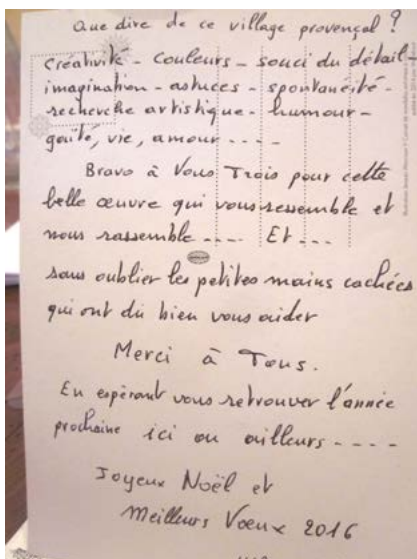 Que dire de ce village provençal ?
Créativité - Couleurs - souci du détail -
imagination - astuces - spontanéité -
recherche artistique - humour -
gaîté, vie, amour ----
Bravo à Vous Trois pour cette
belle œuvre qui vous ressemble et
nous rassemble .... Et ...
sans oublier les petites mains cachées
qui ont dû bien vous aider
Merci à Tous.
En espérant vous retrouver l'année
prochaine ici ou ailleurs ----
Joyeux Noël et
Meilleurs Vœux 2016